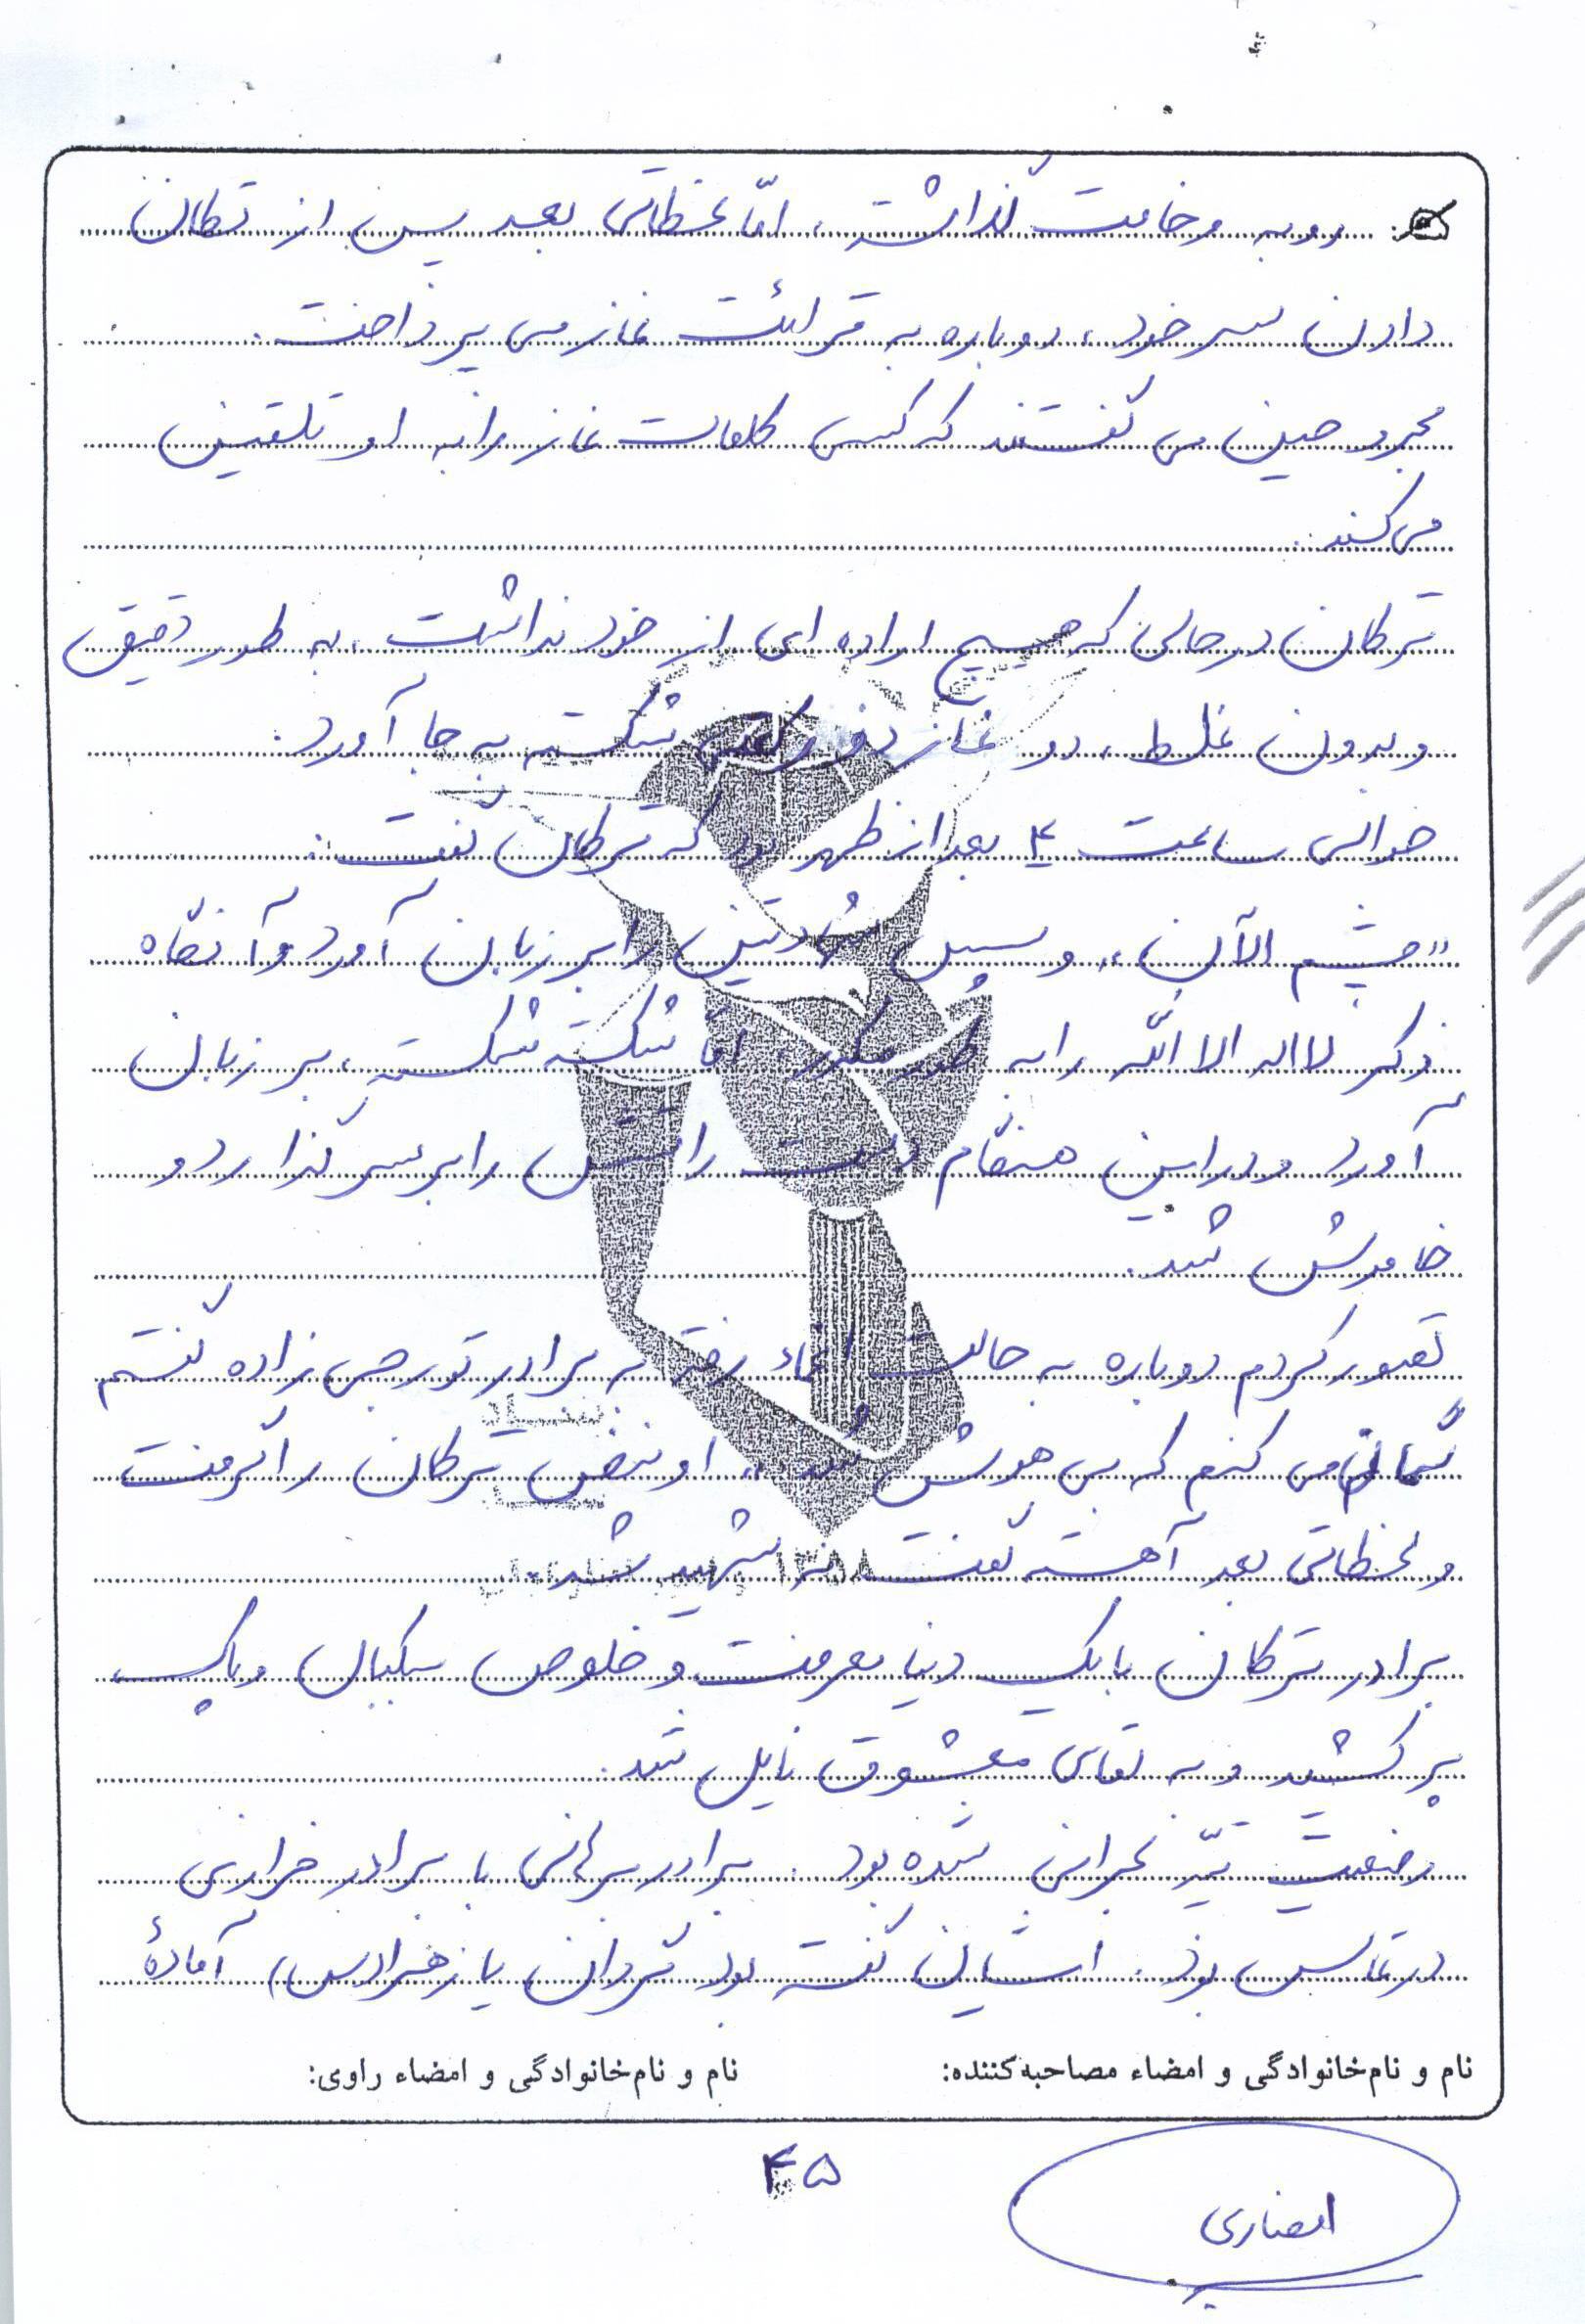 رو به وخامت گذاشت، امّا لحظاتی بعد پس از تکان
دادن سر خود، دوباره به قرائت نماز می پرداخت.
مجروحین می گفتند که کسی کلمات نماز را به او تلقین
می کند.
ترکان در حالی که هیچ اراده ای از خود نداشت، به طور دقیق
و بدون غلط، دو نماز دو رکعتی شکسته به جا آورد.
حوالی ساعت ۴ بعد از ظهر بود که ترکان گفت:
"چشم الآن"، و سپس شهادتین را بر زبان آورد و آنگاه
ذکر لا اله الا الله را به طور مکرر، امّا شکسته شکسته، بر زبان
آورد و در این هنگام دست راستش را بر سر گذارد و
خاموش شد.
تصور کردم دوباره به حالت اغماء رفته به برادر تورجی زاده گفتم
"گمان می کنم که بی هوش شد"، او نبض ترکان را گرفت
و لحظاتی بعد آهسته گفت نه شهید شد.
برادر ترکان با یک دنیا معرفت و خلوص سبکبال و پاک
پر کشید و به لقای معشوق نایل شد.
وضعیت تیپ بحرانی شده بود. برادر برهانی با برادر خرازی
در تماس بود. ایشان گفته بود گردان یا زهرا(س) آمادهٔ
نام و نام‌خانوادگی و امضاء مصاحبه‌کننده:
نام و نام‌خانوادگی و امضاء راوی:
۴۵
انصاری